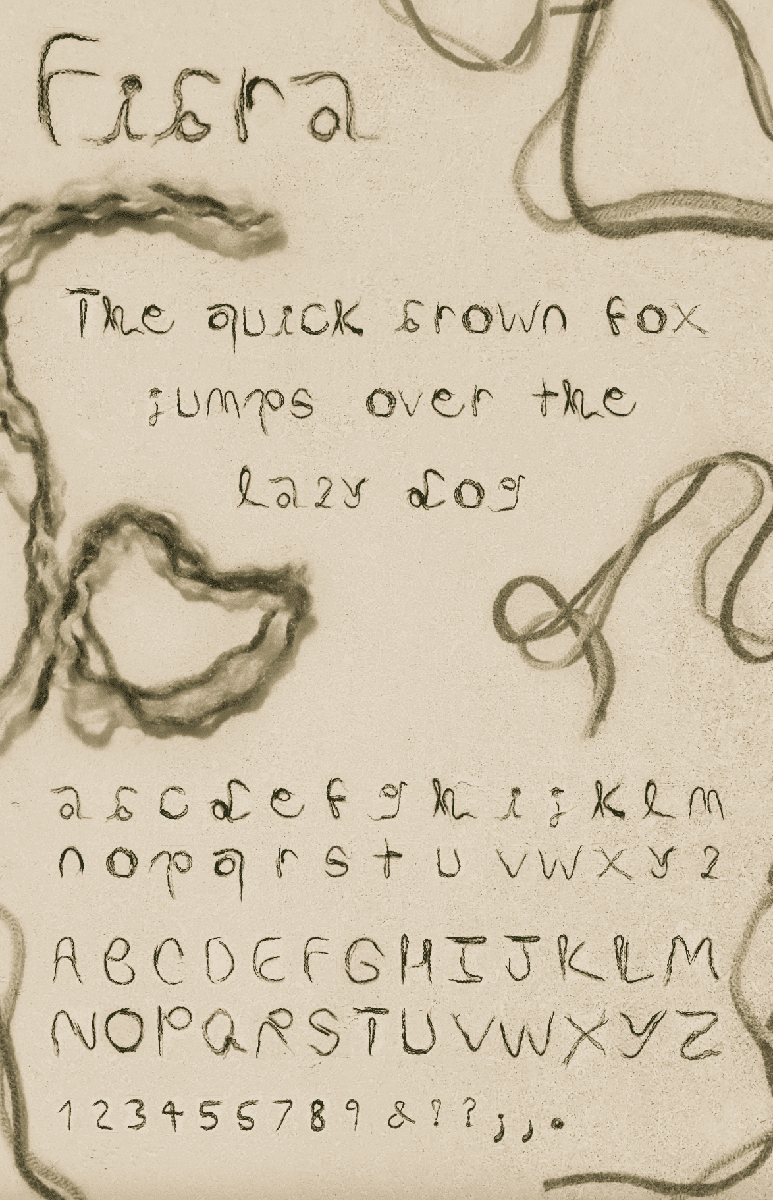 Fibra
The quick brown fox
jumps over the
lazy dog
a b c d e f g h i j k l m
n o p q r s t u v w x y z
A B C D E F G H I J K L M
N O P Q R S T U V W X Y Z
1 2 3 4 5 6 7 8 9 & ! ? ; , .